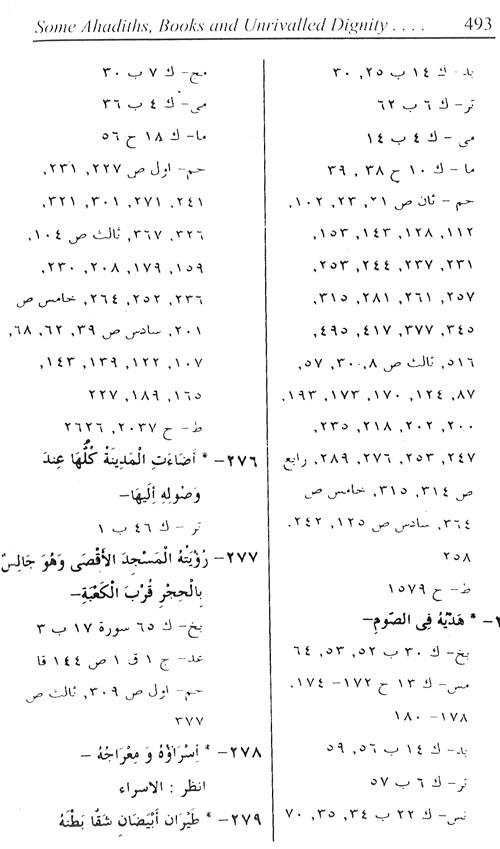 Some Ahadiths, Books and Unrivalled Dignity .... 493
بد- ك ١٤ ب ٢٥, ٣٠
تر- ك ٦ ب ٦٢
مى - ك ٤ ب ١٤
ما - ك ١٠ ح ٣٨, ٣٩
حم - ثان ص ٢١, ٢٣, ١٠٢,
١١٢, ١٢٨, ١٤٣, ١٥٣,
٢٣١, ٢٣٧, ٢٤٤, ٢٥٣,
٢٥٧, ٢٦١, ٢٨١, ٣١٥,
٣٤٥, ٣٧٧, ٤١٧, ٤٩٥,
٥١٦, ثالث ص ٨, ٣٠, ٥٧,
٨٧, ١٢٤, ١٧٠, ١٧٣, ١٩٣,
٢٠٠, ٢٠٢, ٢١٨, ٢٣٥,
٢٤٧, ٢٥٣, ٢٧٦, ٢٨٩, رابع
ص ٣١٤, ٣١٥, خامس ص
٣٦٤, سادس ص ١٢٥, ٢٤٢,
٢٥٨
ط- ح ١٥٧٩
- * هَدْيُهُ فِى الصَّومِ-
بخ- ك ٣٠ ب ٥٢, ٥٣, ٦٤
مس- ك ١٣ ح ١٧٢- ١٧٤,
١٧٨- ١٨٠
بد- ك ١٤ ب ٥٦, ٥٩
تر- ك ٦ ب ٥٧
نس- ك ٢٢ ب ٣٤, ٣٥, ٧٠
مج- ك ٧ ب ٣٠
مى- ك ٤ ب ٣٦
ما- ك ١٨ ح ٥٦
حم- اول ص ٢٢٧, ٢٣١,
٢٤١, ٢٧١, ٣٠١, ٣٢١,
٣٢٦, ٣٦٧, ثالث ص ١٠٤,
١٥٩, ١٧٩, ٢٠٨, ٢٣٠,
٢٣٦, ٢٥٢, ٢٦٤, خامس ص
٢٠١, سادس ص ٣٩, ٦٢, ٦٨,
١٠٧, ١٢٢, ١٣٩, ١٤٣,
١٦٥, ١٨٩, ٢٢٧
ط- ح ٢٠٣٧, ٢٦٢٦
٢٧٦- * أضَاءَتِ الْمَدِينَةُ كُلُّهَا عِندَ
وَصُولِهِ اِلَيهَا-
تر - ك ٤٦ ب ١
٢٧٧- رُؤيَتْهُ الْمَسْجِدَ الأَقْصَى وَهُوَ جَالِسٌ
بِالْحِجْرِ قُرْبَ الْكَعْبَةِ-
بخ- ك ٦٥ سورة ١٧ ب ٣
عد- ج ١ ق ١ ص ١٤٤ قا
حم- اول ص ٣٠٩, ثالث ص
٣٧٧
٢٧٨- * اِسْرَاؤهُ وَ مِعْرَاجُهُ -
انظر : الاسراء
٢٧٩- * طَيْرَان أَبْيَضَانِ شَقَّا بَطْنَهُ